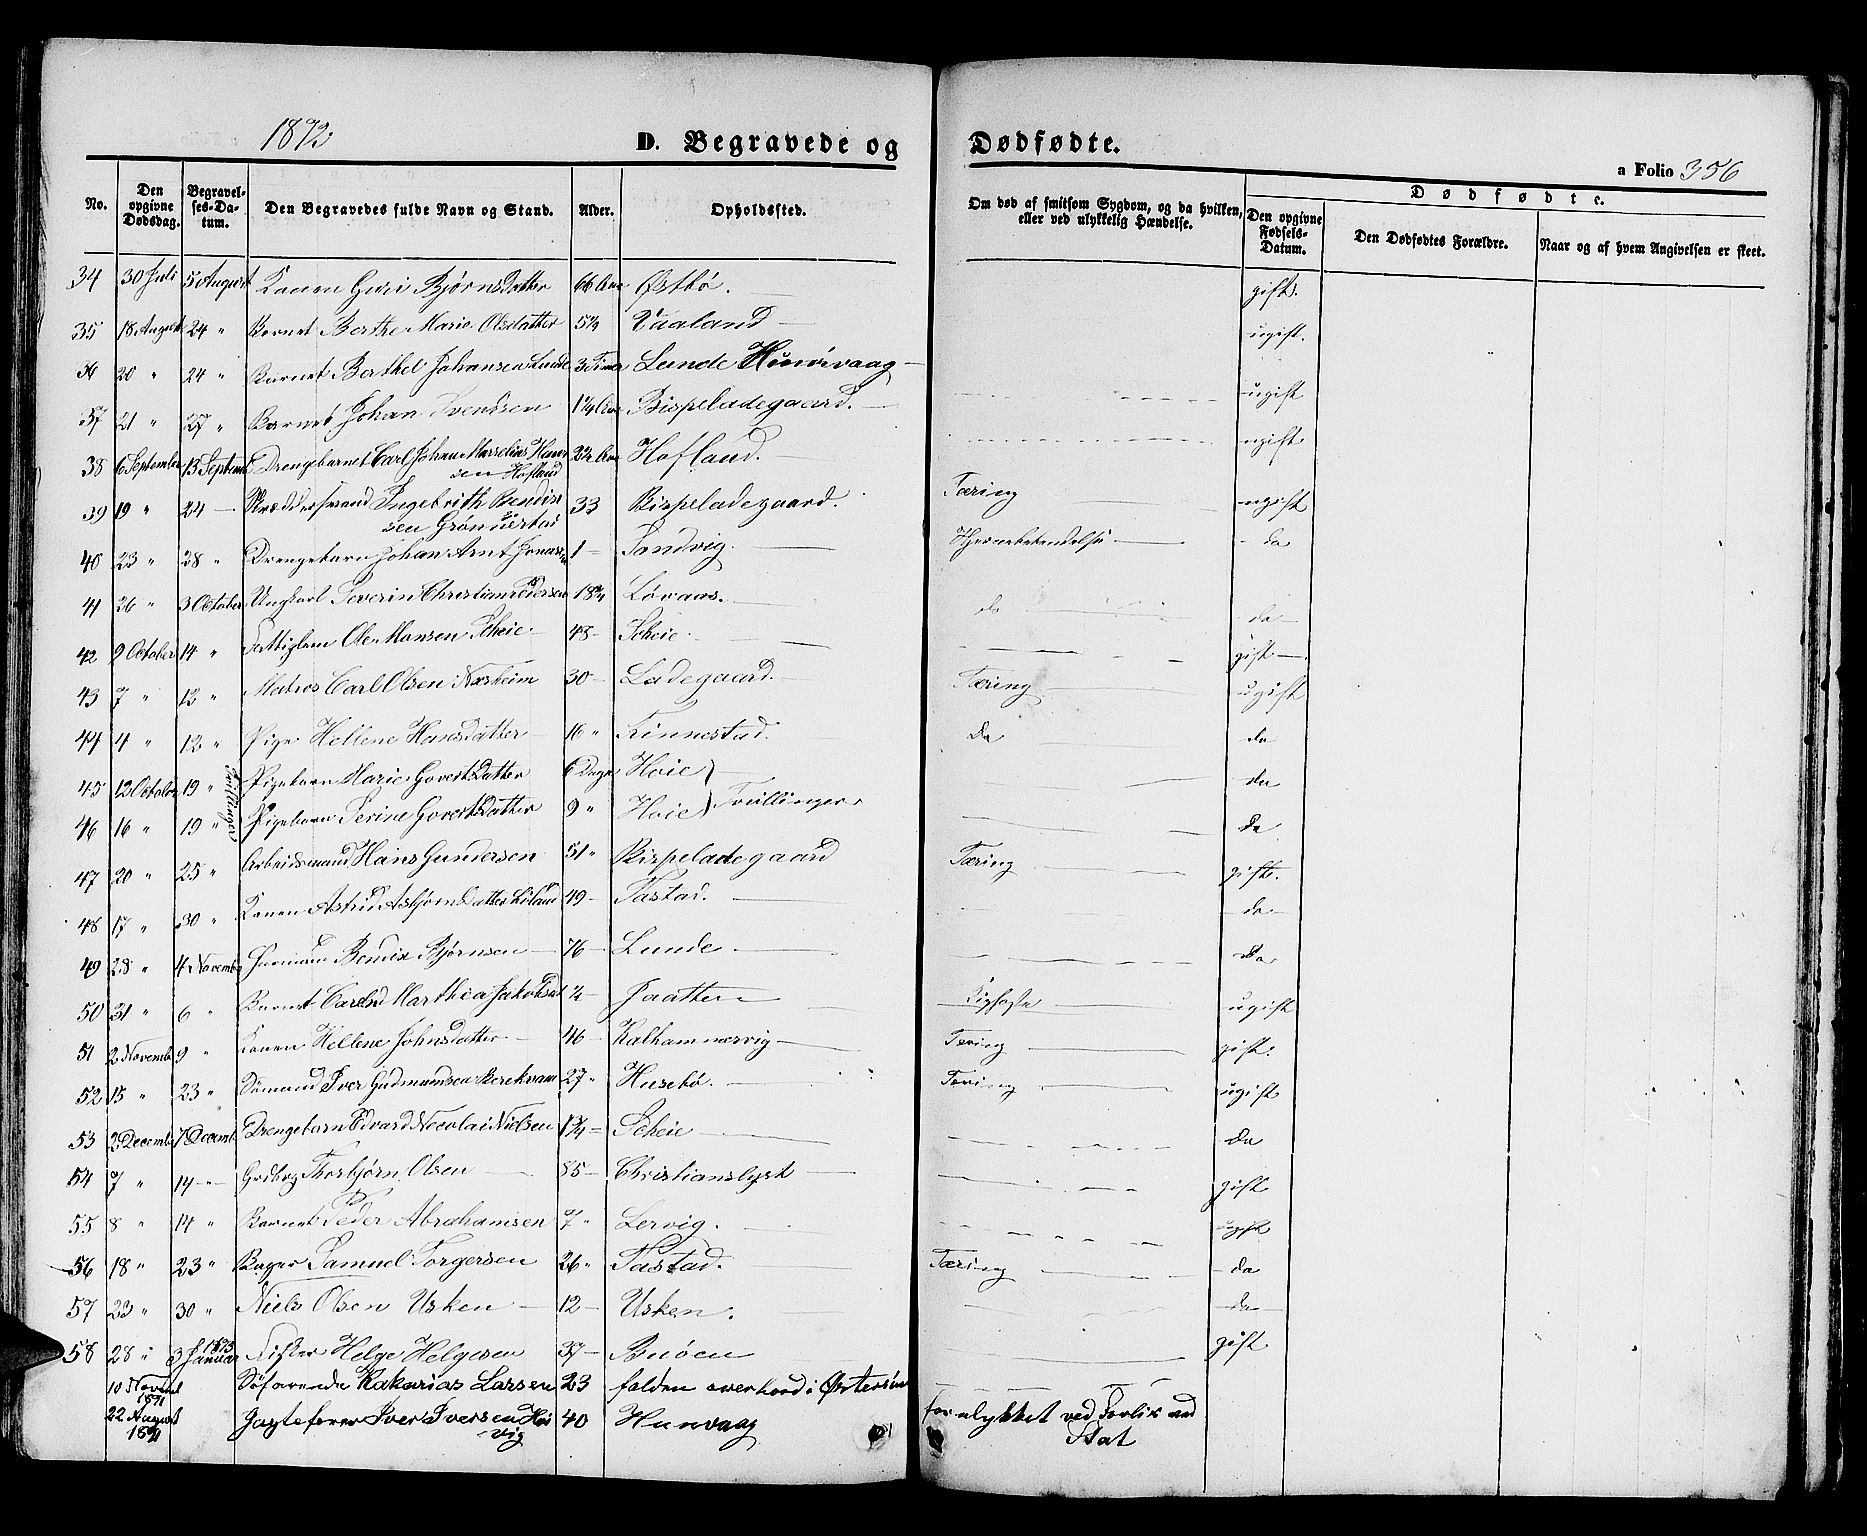 1872
D. Begravede og Dødfødte.
a Folio 356
No. Den opgivne Dødsdag. Begravelses-Datum. Den Begravedes fulde Navn og Stand. Alder. Opholdssted. Om død af smitsom Sygdom, og da hvilken, eller ved ulykkelig Hændelse. Dødfødte. Den opgivne Fødsels-Datum. Den Dødfødtes Forældre. Naar og af hvem Angivelsen er skeet.
34 30 Juli 5 August Konen Guri Bjørnsdatter 66 Aar Østbø. gift.
35 18 August 24 " Barnet Berthe Marie Olsdatter Vaaland ugift.
36 20 " 24 " Barnet Berthel Johansen Lunde 3 Timer Lunde Hundvaag ugift
37 21 " 27 " Barnet Johan Svendsen 1 1/4 Aar Bispeladegaard. ugift
38 6 September 13 Septemb Drengebarnet Carl Johan Marselius Hansen Hofland Hofland.
39 19 " 24 — Ingebrith Bendixsen Grønnestad 33 Bispeladegaard. Tæring ugift
40 23 " 28 " Drengebarn Johan Arnt Jonassen 1 — Sandvig. Hjernebetændelse da
41 26 " 3 October Ungkarl Severin Christian Pedersen 18 3/4 Løvaas. do da
42 9 October 14 " Fattiglem Ole Hansen Scheie 48 — Scheie. gift
43 7 " 12 " Matros Carl Olsen Næsheim 30 — Ladegaard. Tæring ugift
44 4 " 12 " Pige Hellene Hansdatter 16 " Finnestad. Do do
45 12 October 19 " Tvillinger Pigebarn Marie Govertsdatter 6 Dage Hoie } da
46 16 " 19 " Pigebarn Serine Govertsdatter 9 " Hoie } Tvillinger Da
47 20 " 25 " Arbeidsmand Hans Gundersen 51 " Bispeladegaard Tæring gifte.
48 17 " 30 " Konen Astrid Asbjørnsdatter 49 — Tastad. da
49 28 " 4 Novemb Bendix Bjørnsen 76 — Lunde da
50 31 " 6 " Barnet Marthea Jakobsd 1/2 — Jaatten ugift
51 2 Novemb 9 " Konen Hellene Johnsdatter 46 — Kalhammervig Tæring gift.
52 15 " 23 " Sømand Iver Gudmundsen Berekvam 27 " Husebø. Tæring ugift
53 2 Decemb 7 Decemb Drengebarn Edvard Necolai Nielsen 1 3/4 — Scheie Da
54 7 " 14 — Thorbjørn Olsen 85 — Christianslyst gift
55 8 " 14 " Barnet Peder Abrahamsen 7 " Lervig. ugift
56 18 " 23 " Bager Samuel Torgersen 26 " Tastad. Tæring da
57 23 " 30 " Niels Olsen Usken 12 — Usken. da
58 28 " 3 Januar 1873 Fisker Helge Helgesen 37 — Buøen gift
10 Novemb 1871 Søfarende Zakarias Larsen 23 falden overbord i Østersøen
22 August 1871 Jagtefører Iver Iversen Høvig 40 Hunvaag forulykket ved Forlis ved Stat